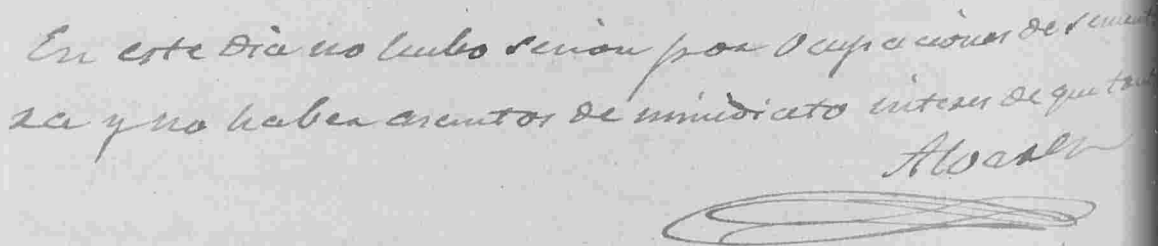 En este dia no hubo sesion por ocupaciones de sement
za y no haber asuntos de inmediato interes de que trat
Alvarez